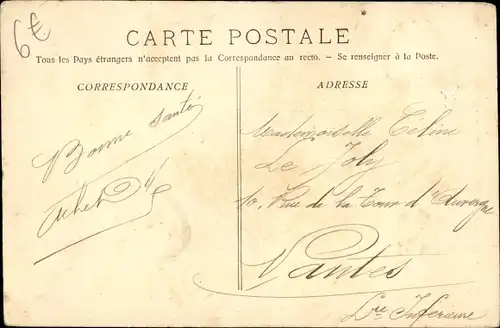 6€
CARTE POSTALE
Tous les Pays étrangers n'acceptent pas la Correspondance au recto. – Se renseigner à la Poste.
CORRESPONDANCE
Bonne santé
ADRESSE
Mademoiselle Céline
Le Joly
10, Rue de la Tour d'Auvergne
Nantes
Lre Inférieure